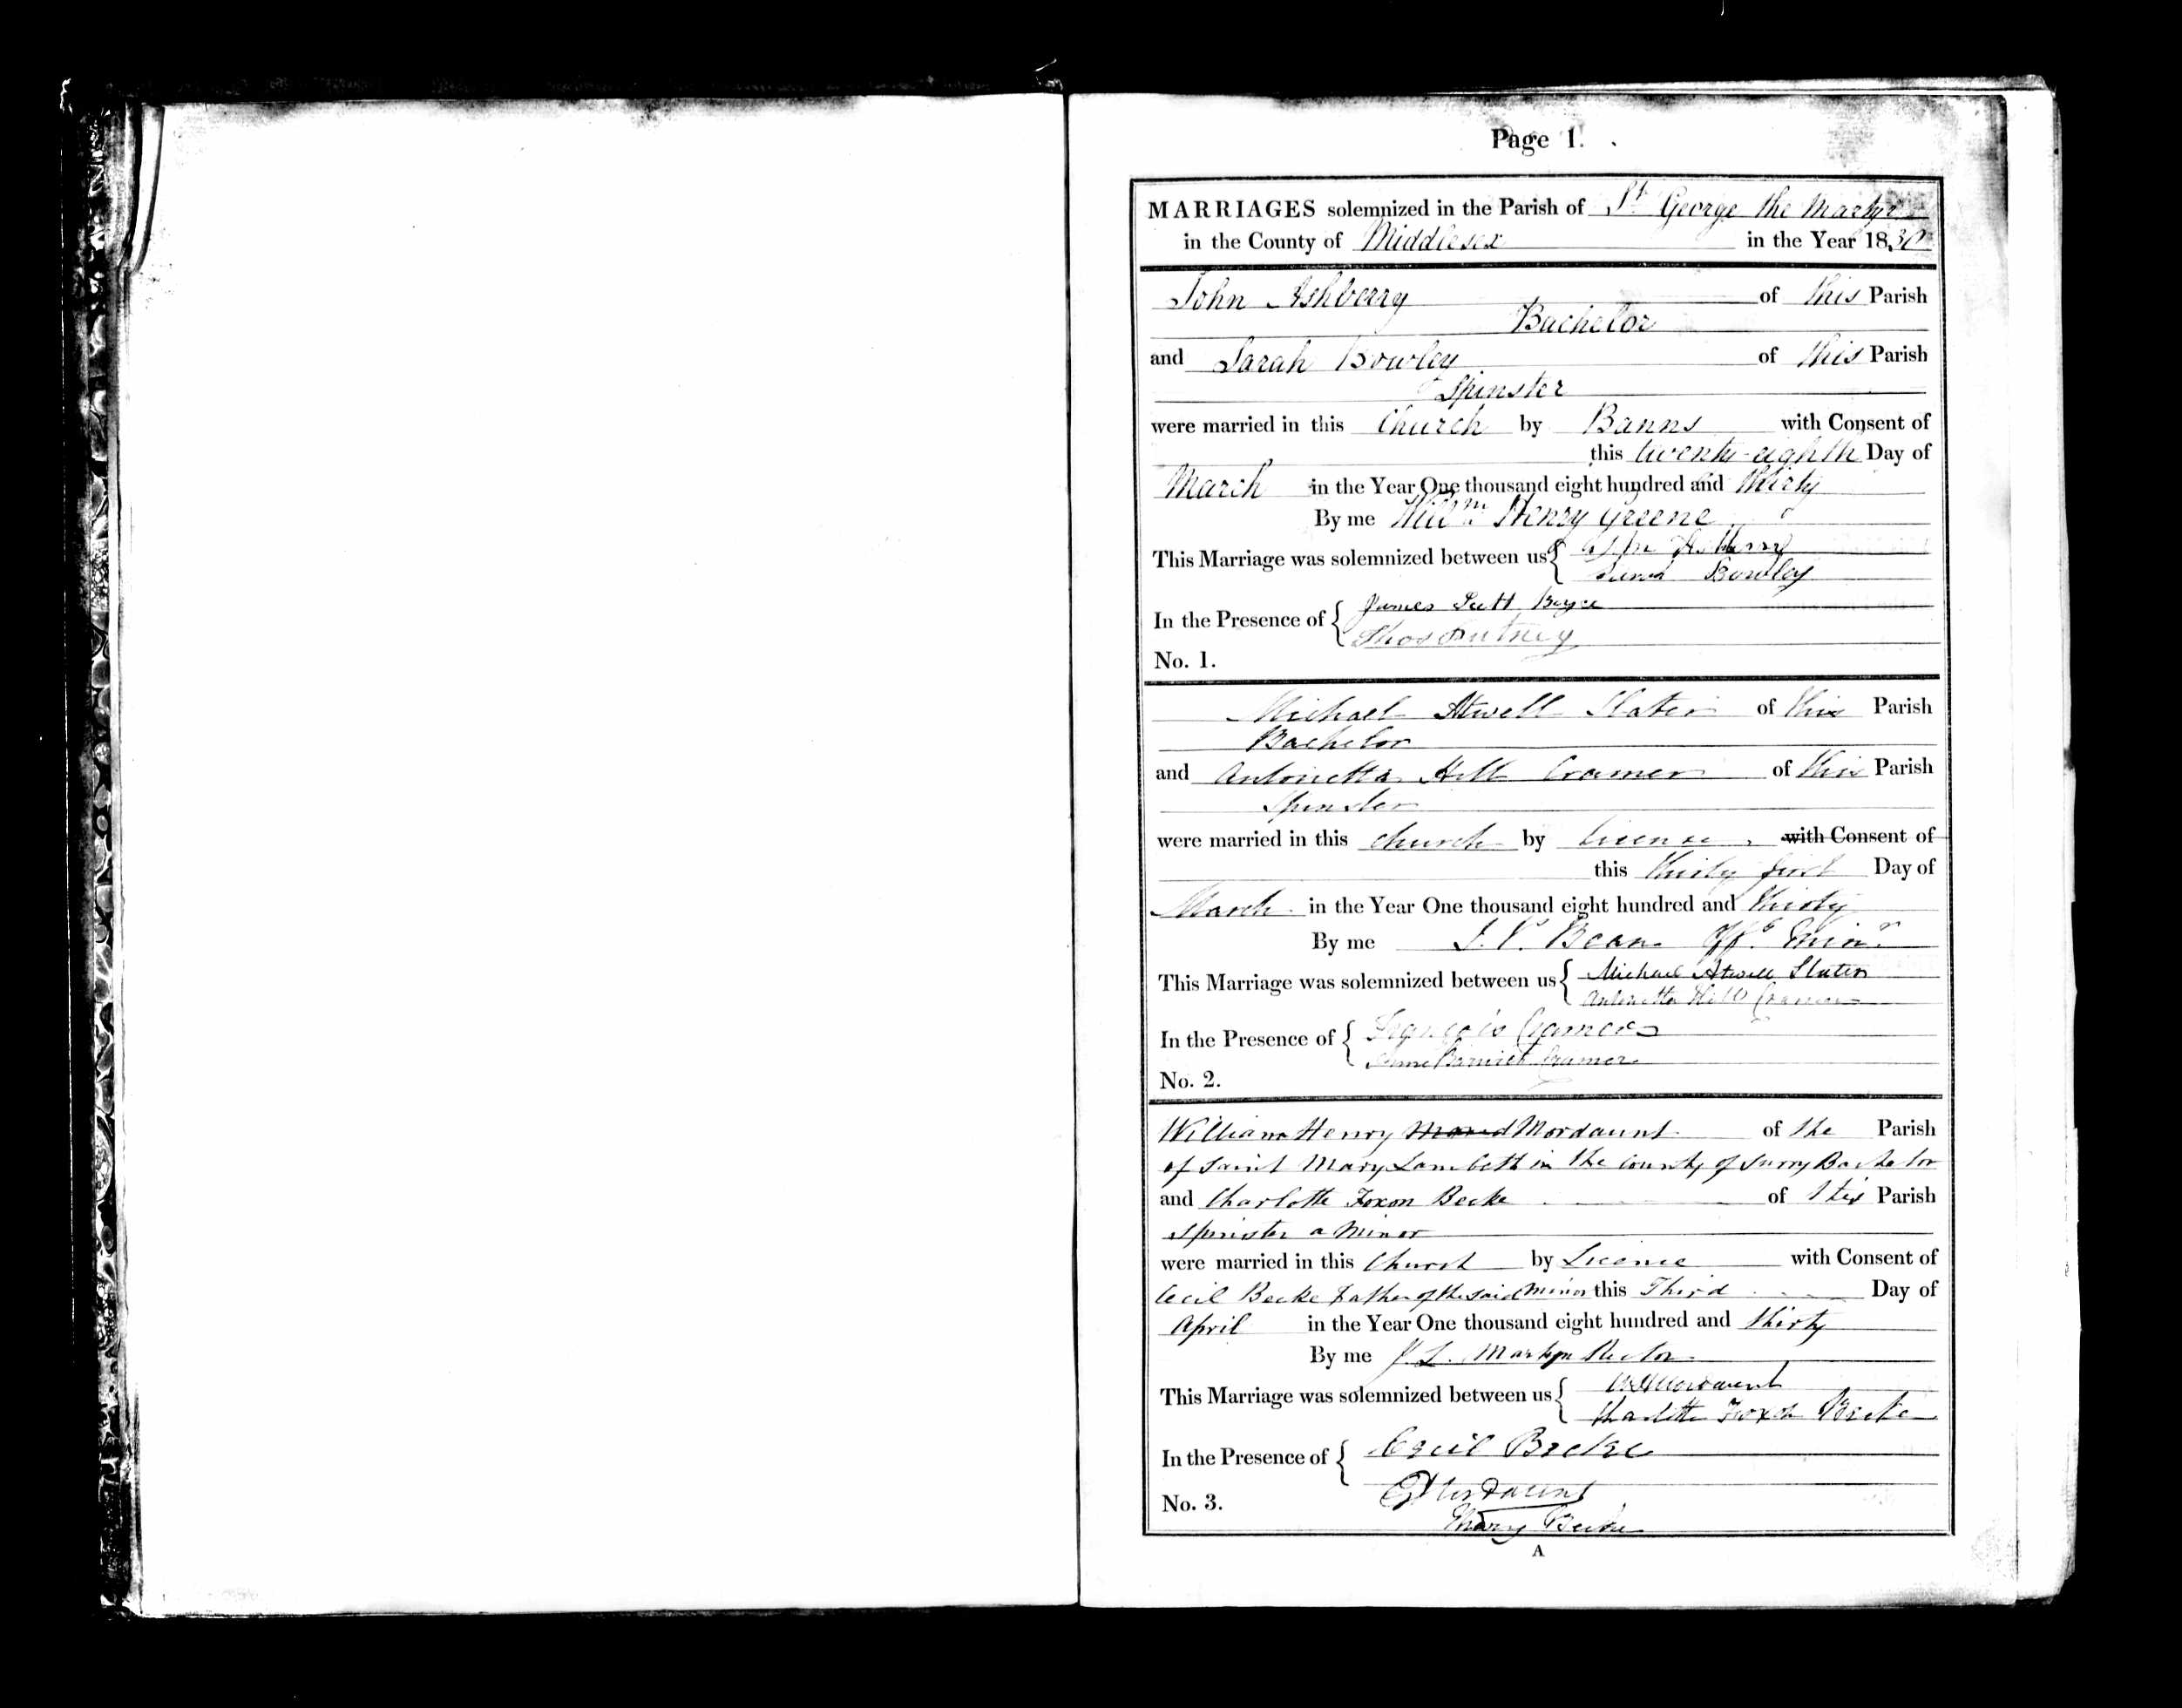 Page 1.
MARRIAGES solemnized in the Parish of St George the Martyr
in the County of Middlesex in the Year 1830
John Ashberry of this Parish
Bachelor
and Sarah Bowley of this Parish
Spinster
were married in this Church by Banns with Consent of
this twenty-eighth Day of
March in the Year One thousand eight hundred and thirty
By me Willm Henry Greene
This Marriage was solemnized between us {
Sarah Bowley
In the Presence of { James Scott Boyce
Thos Putney
No. 1.
Michael Atwell Slater of this Parish
Bachelor
and Antoinetta Hill Cramer of this Parish
Spinster
were married in this church by License with Consent of
this thirty first Day of
March in the Year One thousand eight hundred and thirty
By me J. V. Bean Offg Minr
This Marriage was solemnized between us { Michael Atwell Slater
Antoinetta Hill Cramer
In the Presence of { François Cramer
Cramer
No. 2.
William Henry Mordaunt of the Parish
of Saint Mary Lambeth in the County of Surry Bachelor
and Charlotte Foxon Becke of this Parish
Spinster a Minor
were married in this Church by Licence with Consent of
Cecil Becke Father of the said Minor this Third Day of
April in the Year One thousand eight hundred and thirty
By me J. L. Martyn Rector
This Marriage was solemnized between us { W H Mordaunt
Charlotte Foxon Becke
In the Presence of { Cecil Becke
Mordaunt
No. 3.
Mary Becke
A